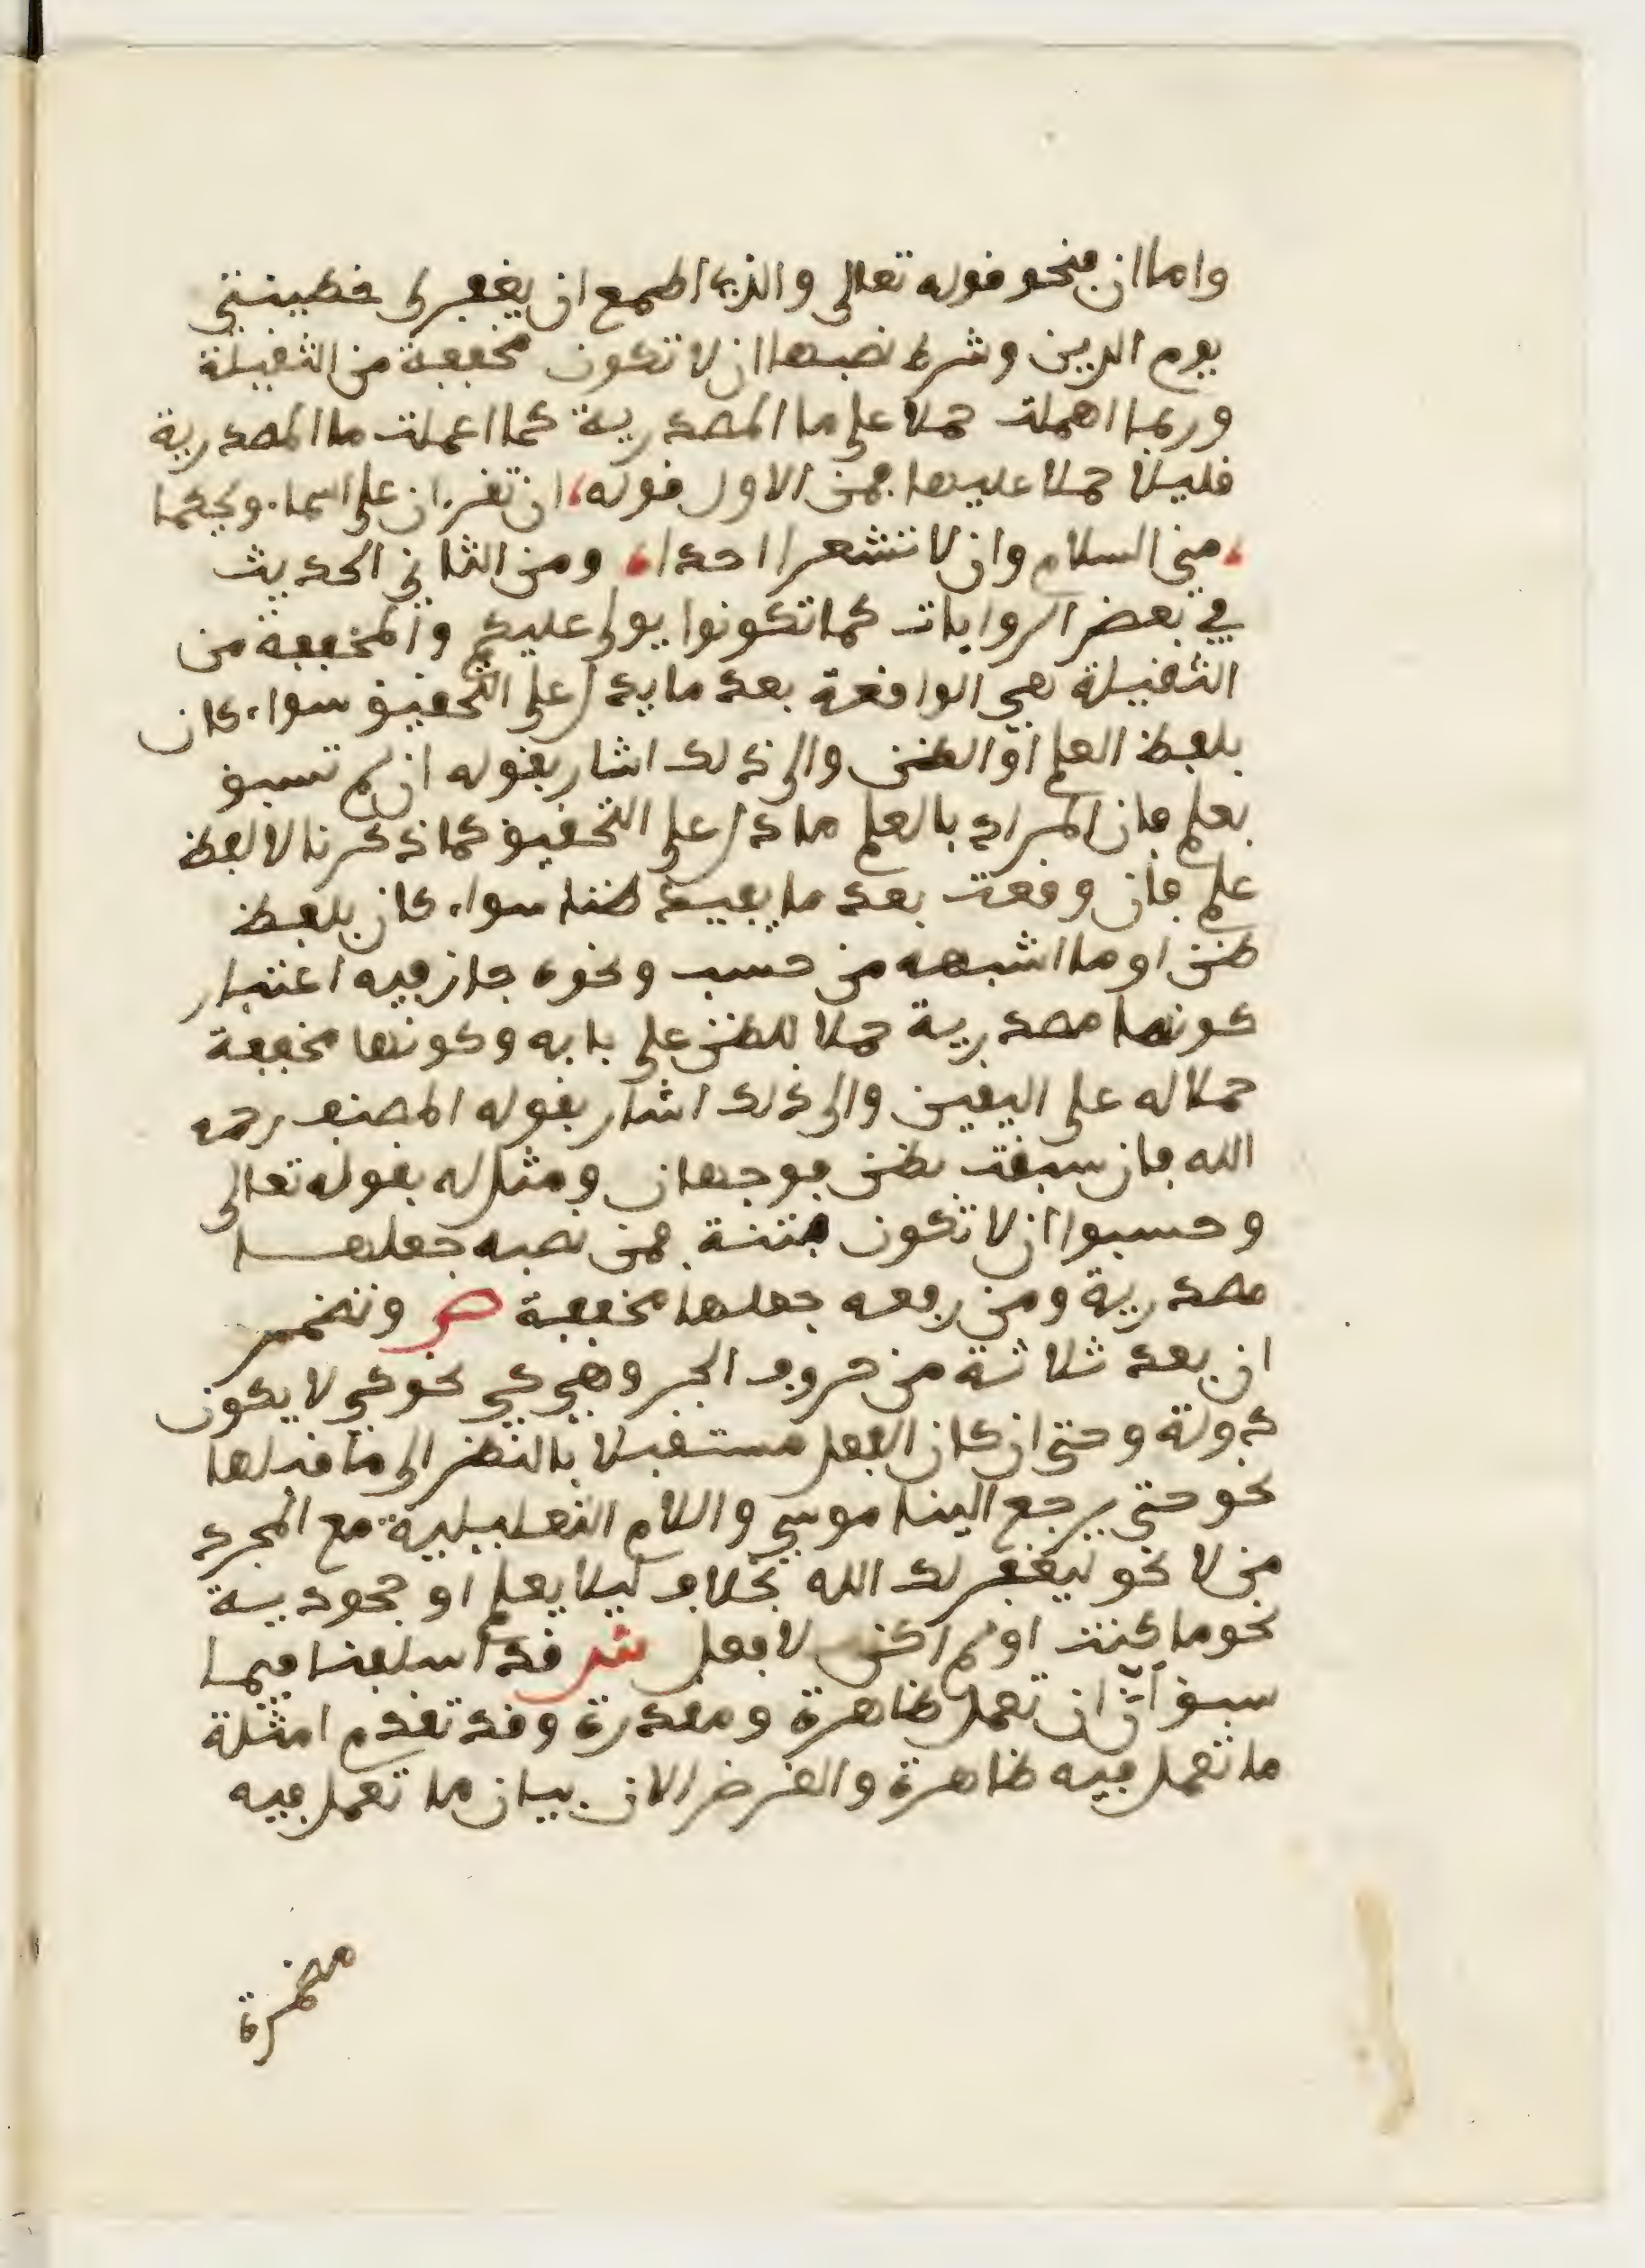 واما ان فنحو قوله تعالى والذي اطمع ان يغفر لي خطيئتي
يوم الدين وشرط نصبها ان لا تكون مخففة من الثقيلة
وربما اهملت حملا على ما المصدرية كما اعملت ما المصدرية
قليلا حملا عليها فمن الاول قوله، ان تقرءان على اسماء ويحكما
، مني السلام وان لا تشعرا احدا، ومن الثاني الحديث
في بعض الروايات كما تكونوا يولى عليكم والمخففة من
الثقيلة هي الواقعة بعد ما يدل على التحقيق سواء كان
بلفظ العلم او الظن والى ذلك اشار بقوله ان لم تسبق
بعلم فان المراد بالعلم ما دل على التحقيق كما ذكرنا لا لفظ
علم فان وقعت بعد ما يفيد ظنا سواء كان بلفظ
ظن او ما اشبهه من حسب ونحوه جاز فيه اعتبار
كونها مصدرية حملا للظن على بابه وكونها مخففة
حملا له على اليقين والى ذلك اشار بقوله المصنف رحمه
الله فان سبقت بظن فوجهان ومثل له بقوله تعالى
وحسبوا ان لا تكون فتنة فمن نصبه جعلها
مصدرية ومن رفعه جعلها مخففة ص وتضمر
ان بعد ثلاثة من حروف الجر وهي كي نحو كي لا يكون
دولة وحتى ان كان الفعل مستقبلا بالنظر الى ما قبلها
نحو حتى يرجع الينا موسى واللام التعليلية مع المجرد
من لا نحو ليغفر لك الله بخلاف ليلا يعلم او جحودية
نحو ما كنت او لم اكن لافعل ش قد اسلفنا فيما
سبق ان ان تعمل ظاهرة ومقدرة وقد تقدم امثلة
ما تعمل فيه ظاهرة والغرض الان بيان ما تعمل فيه
مضمرة